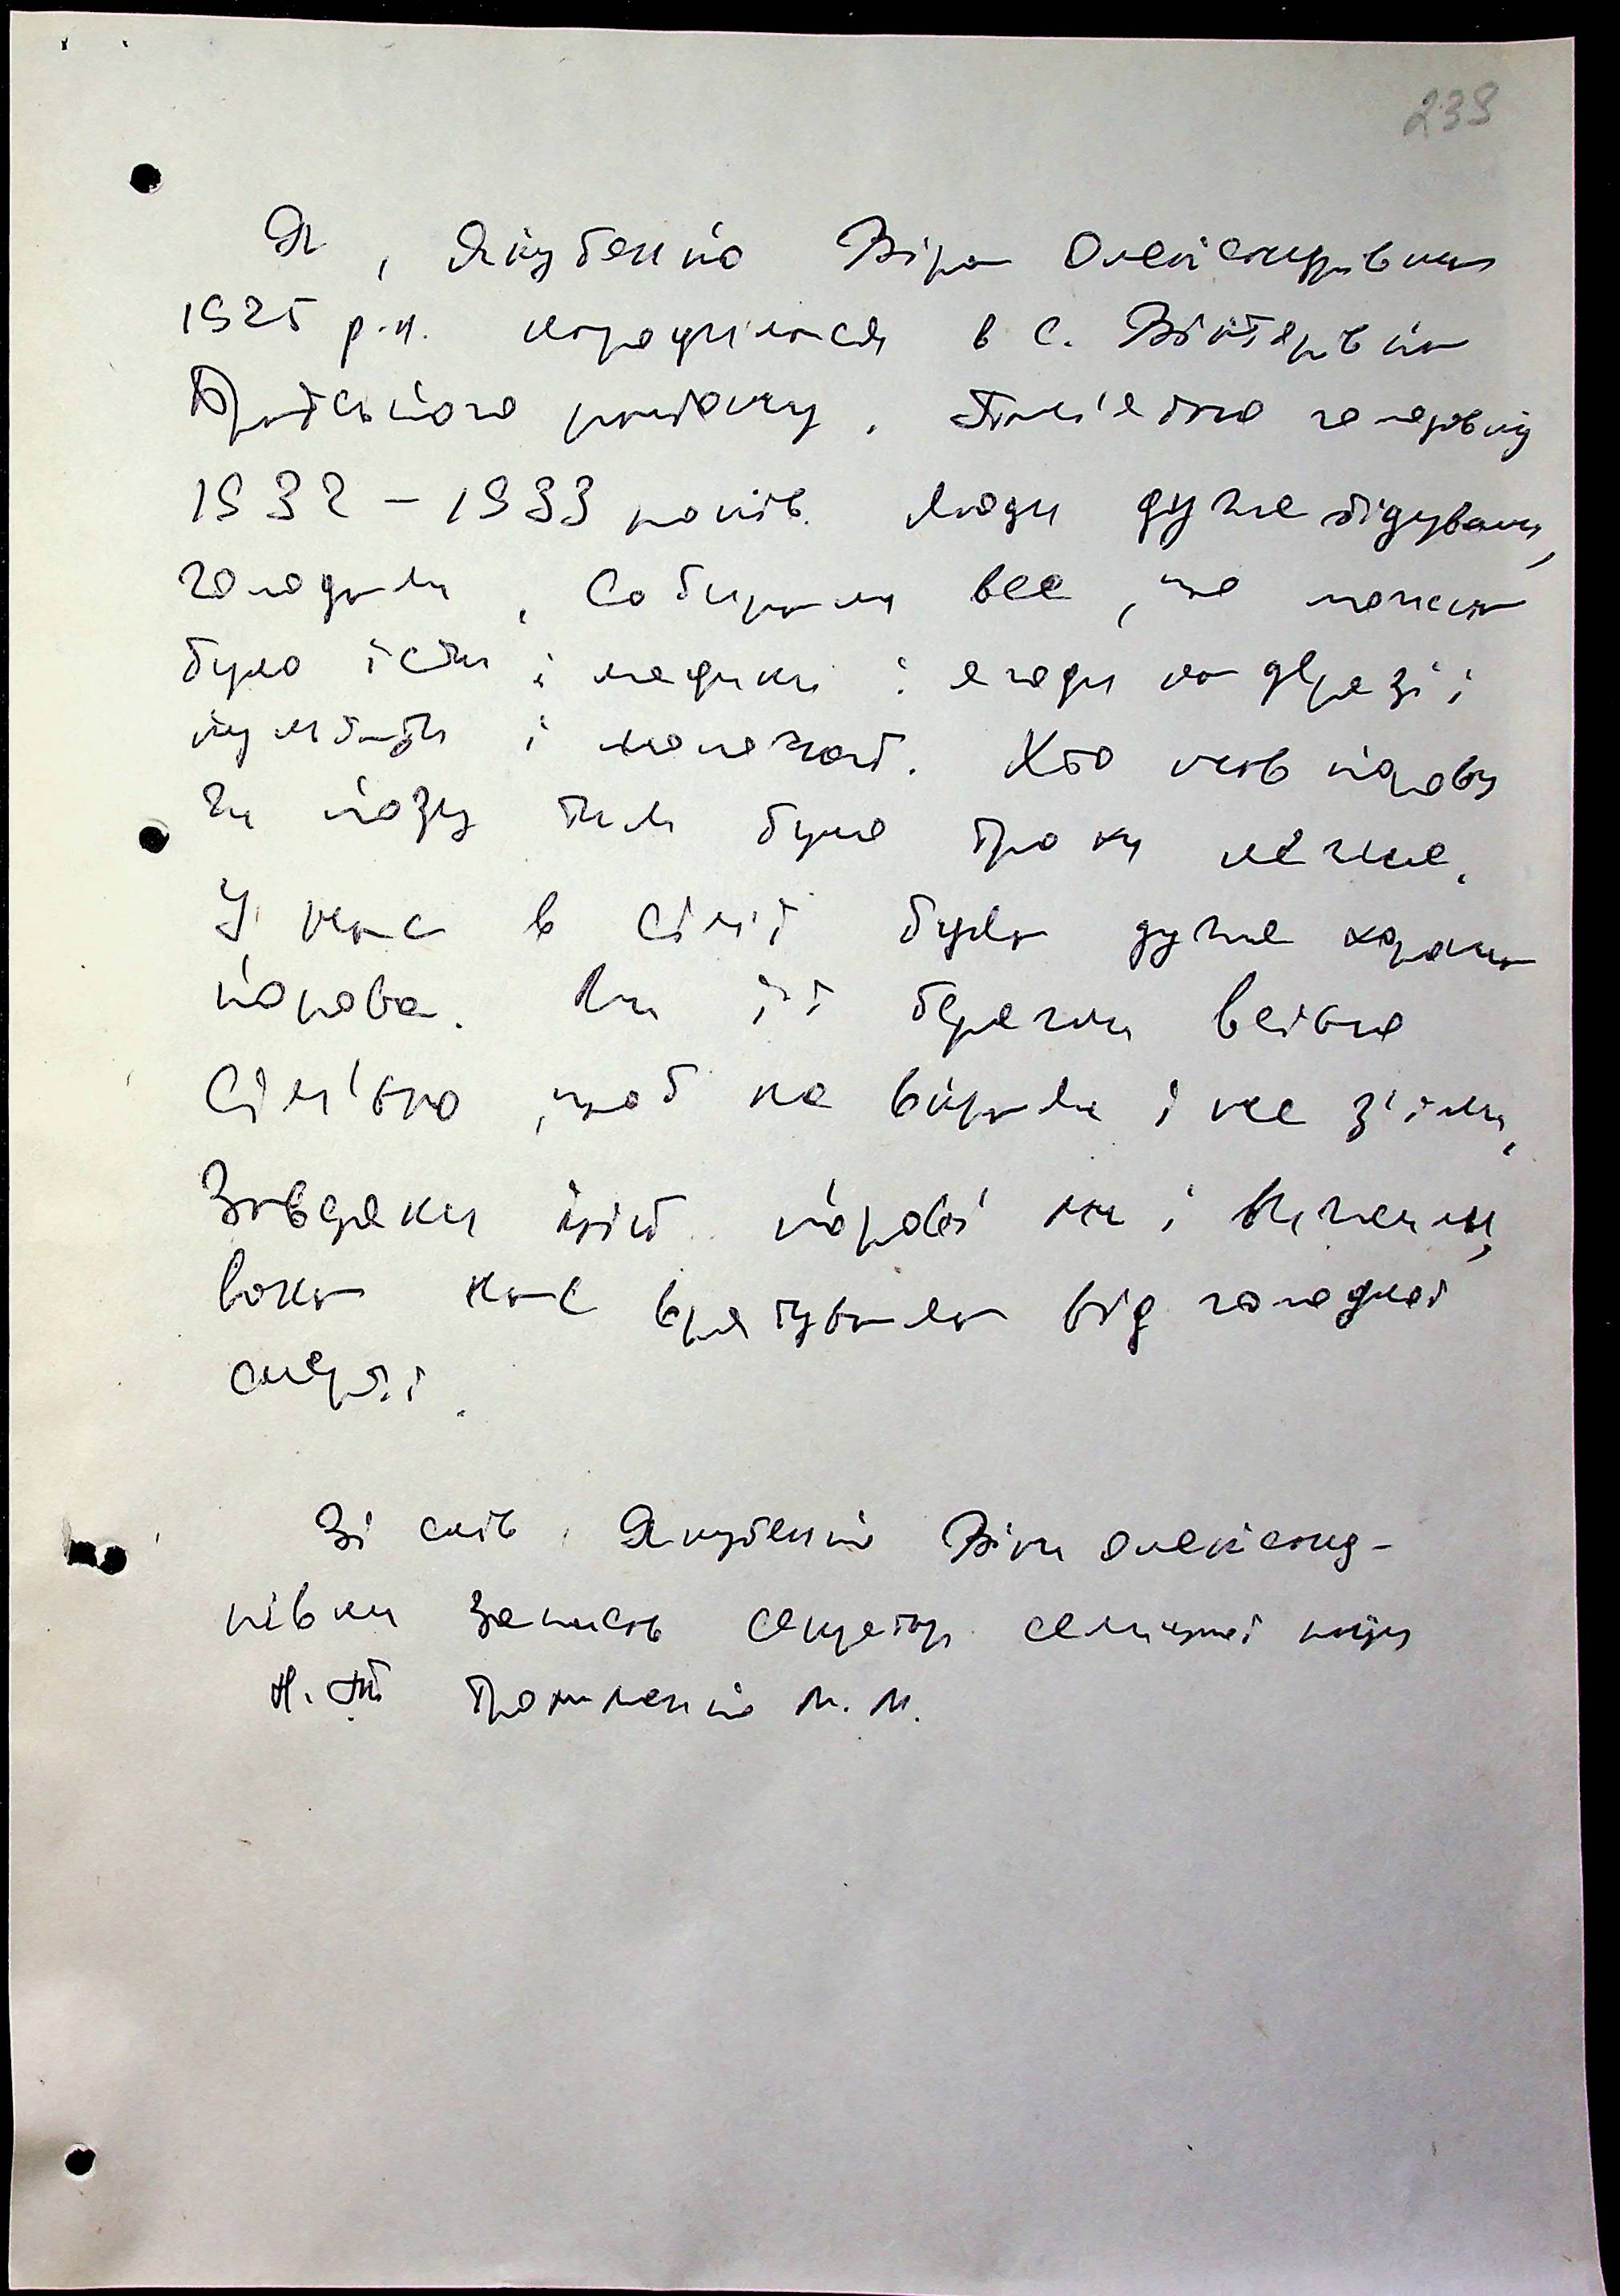 239
Я, Якубенко Віра Олександрівна
1925 р.н. народилася в с. Вікторівка
району. Пам'ятаю голодовку
1932 – 1933 років. Люди дуже бідували,
голодали, собирали все, що можна
було їсти і і ягоди на дерезі і
кульбабу і молочай. Хто мав корову
чи козу тим було трохи легше.
У нас в сім'ї була дуже хороша
корова. Ми її берегли всією
сім'єю, щоб не вкрали і не з'їли,
Завдяки цій корові ми і вижили,
вона нас врятувала від голодної
смерті.
Зі слів Якубенко Віри Олександ-
рівни записав секретар селищної ради
Трохименко М.М.